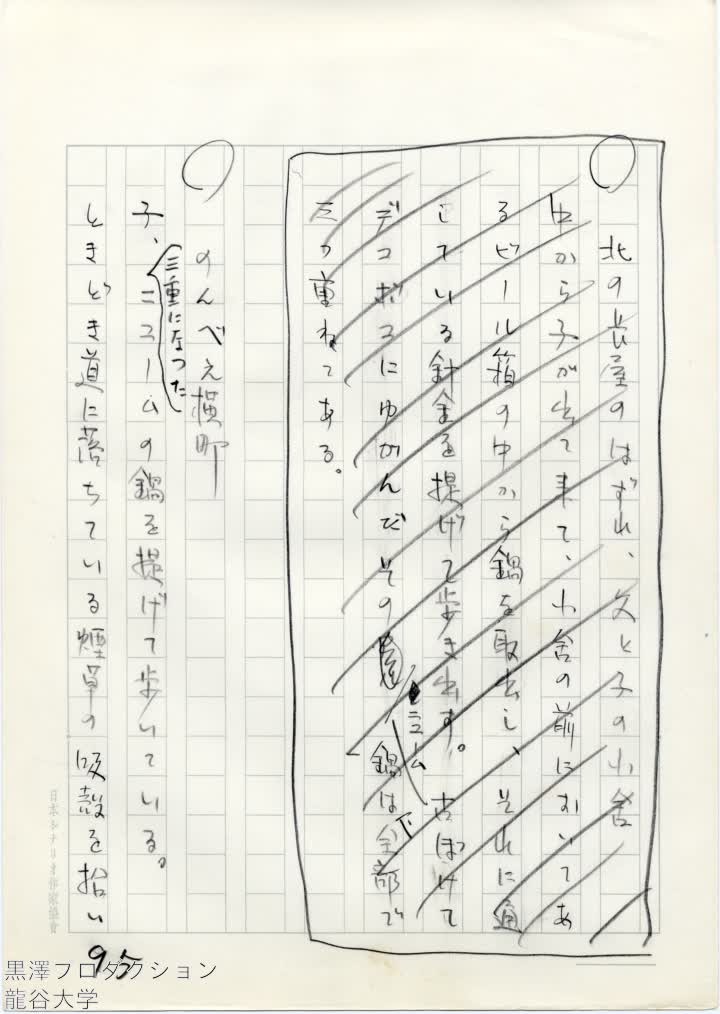 北の長屋のはずれ、父と子の小舎
中から子が出て来て、小舎の前においてあ
るビール箱の中から鍋を取出し、それに通
している針金を提げて歩き出す。古ぼけて
デコボコにゆがんだその
ニューム
鍋は全部で
三つ重ねてある。
のんべえ横町
三重になつた
子、ニュームの鍋を提げて歩いている。
ときどき道に落ちている煙草の吸殻を拾い
日本シナリオ作家協會
95
黒澤プロダクション
龍谷大学